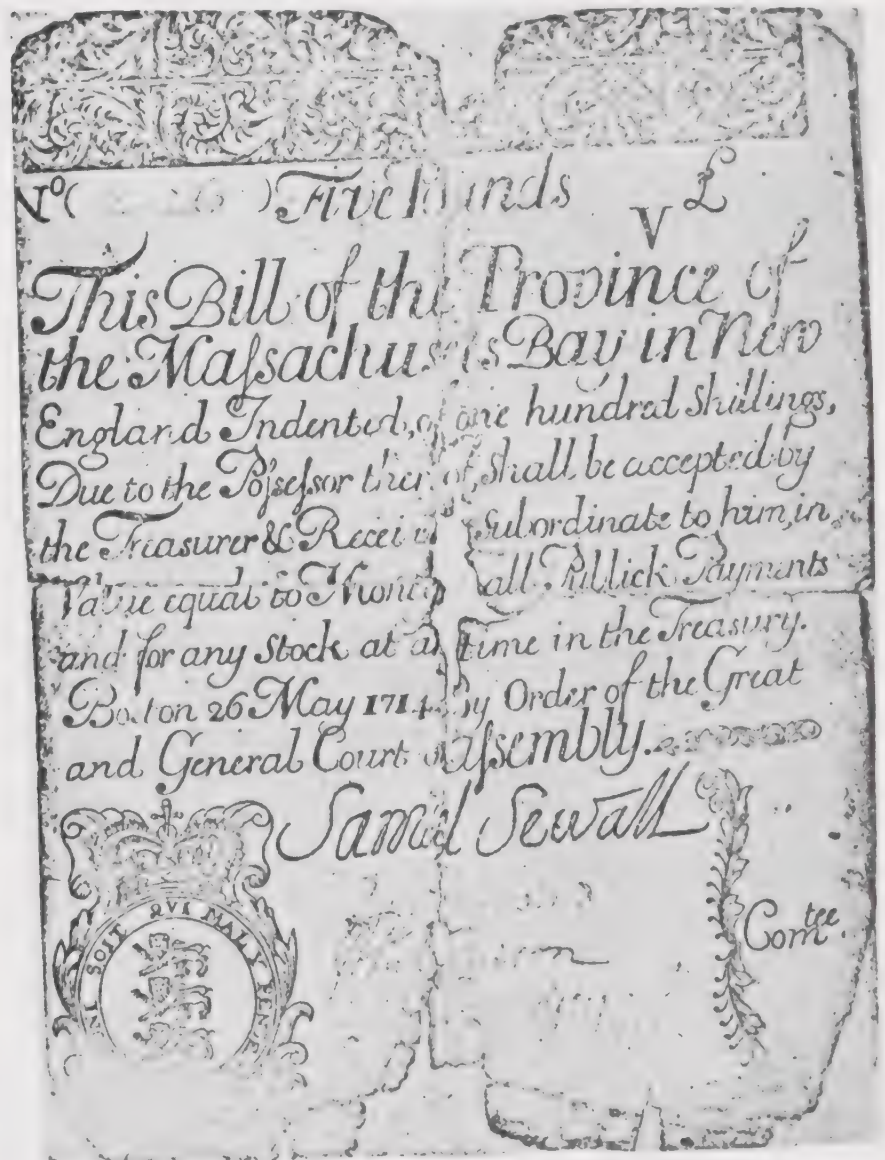 No( ) Five Pounds V £
This Bill of the Province of
the Maſsachusets Bay in New
England Indented, of one hundred Shillings,
Due to the Poſseſsor therof, Shall be accepted by
the Treasurer & Receivr Subordinate to him, in
Value equal to Money all Publick Payments
and for any Stock at any time in the Treasury.
Boston 26 May 1714. By Order of the Great
and General Court or Aſsembly.
Samel Sewall
Comtee.
NI SOIT QVI MAL Y PENCE